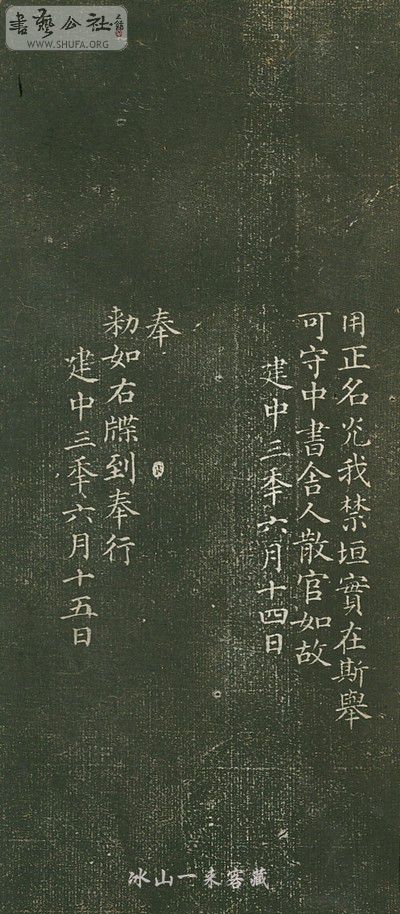 用正名光我禁垣實在斯舉
可守中書舍人散官如故
建中三年六月十四日
奉
勑如右牒到奉行
建中三年六月十五日
書藝公社
WWW.SHUFA.ORG
冰山一来客藏